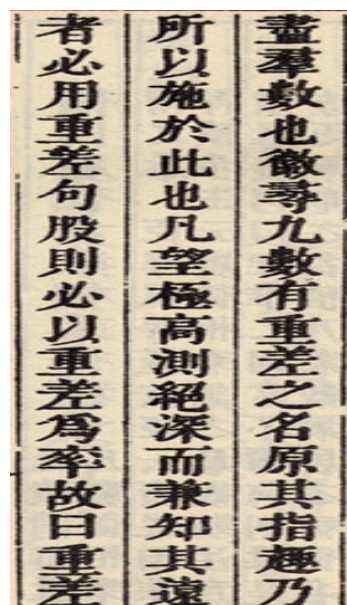 盡羣數也徽尋九數有重差之名原其指趣乃
所以施於此也凡望極高測絕深而兼知其遠
者必用重差句股則必以重差爲率故曰重差